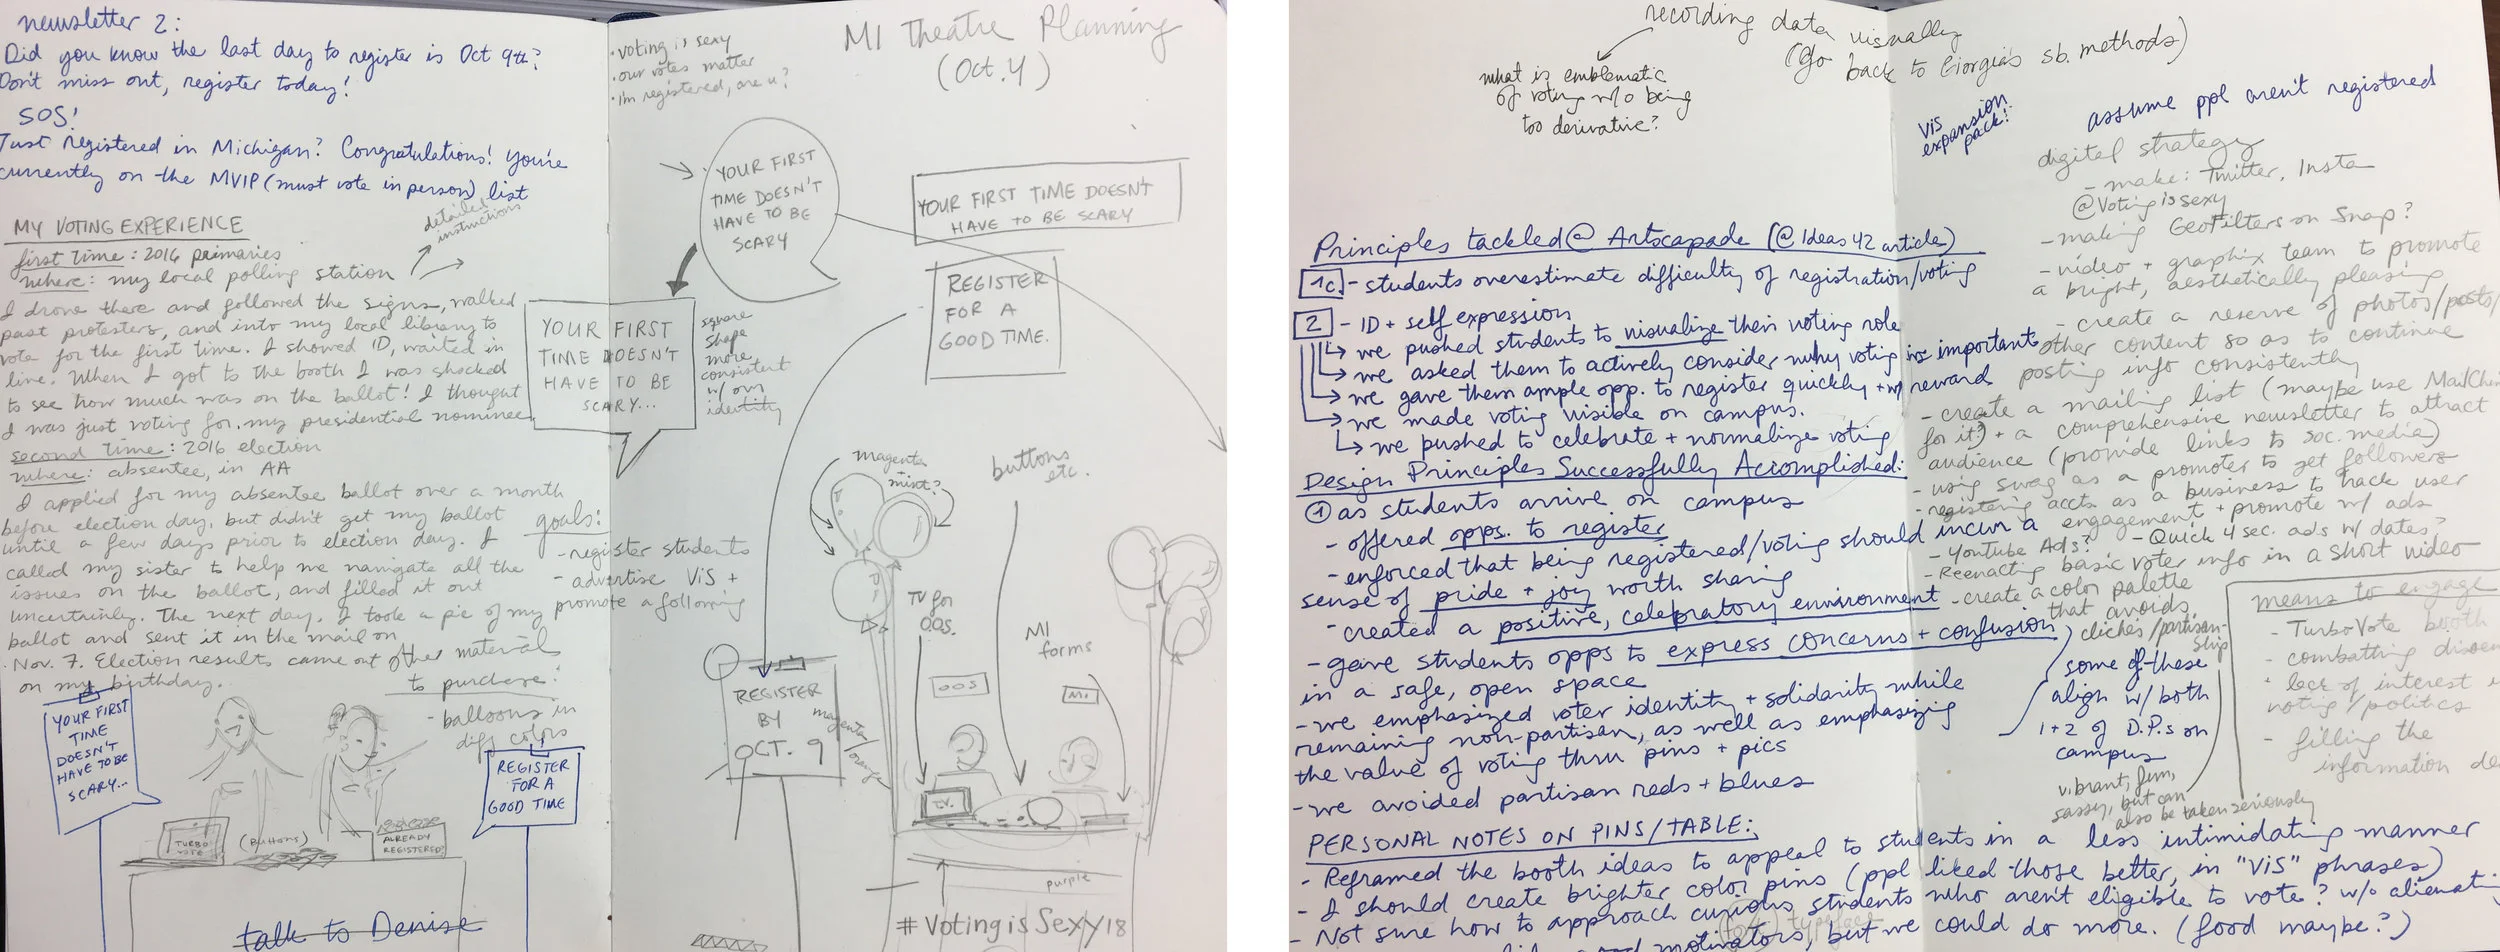 newsletter 2:
Did you know the last day to register is Oct 9th?
Don't miss out, register today!
SOS!
Just registered in Michigan? Congratulations! you're
currently on the MVIP (must vote in person) list
detailed
instructions
MY VOTING EXPERIENCE
first time: 2016 primaries
where: my local polling station
I drove there and followed the signs, walked
past protesters, and into my local library to
vote for the first time. I showed ID, waited in
line. When I got to the booth I was shocked
to see how much was on the ballot! I thought
I was just voting for my presidential nominee.
second time: 2016 election
where: absentee, in AA
I applied for my absentee ballot over a month
before election day, but didn't get my ballot
until a few days prior to election day. I
called my sister to help me navigate all the
issues on the ballot, and filled it out
uncertainly. The next day, I took a pic of my
ballot and sent it in the mail on
Nov. 7. Election results came out
on my birthday.
goals:
- register students
- advertise ViS +
promote a following
other material
to purchase:
- balloons in
diff colors
YOUR FIRST
TIME
DOESN'T
HAVE TO BE
SCARY...
REGISTER
FOR A
GOOD TIME
TURBO
VOTE
(BUTTONS)
ALREADY
REGISTERED?
talk to Denise
• voting is sexy
• our votes matter
• I'm registered, are u?
MI Theatre Planning
(Oct. 4)
YOUR FIRST
TIME DOESN'T
HAVE TO BE
SCARY
YOUR FIRST TIME DOESN'T
HAVE TO BE SCARY
REGISTER
FOR A
GOOD TIME.
YOUR FIRST
TIME DOESN'T
HAVE TO BE
SCARY...
square
shape
more
consistent
w/ our
identity
magenta
mint?
buttons
etc.
TV for
OOS.
MI
forms
OOS
MI
REGISTER
BY
OCT. 9
magenta/
orange
T.V.
purple
#VotingisSexy18
recording data visually
(go back to Giorgia's sb. methods)
what is emblematic
of voting w/o being
too derivative?
ViS
expansion
pack!
assume ppl aren't registered
digital strategy
- make: Twitter, Insta
@Voting is sexy
- making Geofilters on Snap?
- video + graphix team to promote
a bright, aesthetically pleasing
- create a reserve of photos/posts/
other content so as to continue
posting info consistently
- create a mailing list (maybe use MailChimp
for it?) + a comprehensive newsletter to attract
audience (provide links to soc. media)
- using swag as a promoter to get followers
- registering accts as a business to track user
engagement + promote w/ ads
- Youtube Ads? - Quick 4 sec. ads w/ dates?
- Reenacting basic voter info in a short video
- create a color palette
that avoids
cliches/partisan-
ship
Principles tackled @ Artscapade (@ Ideas 42 article)
1c. - students overestimate difficulty of registration/voting
2 - ID + self expression
we pushed students to visualize their voting role
we asked them to actively consider why voting is important
we gave them ample opp. to register quickly + w/ reward
we made voting visible on campus.
we pushed to celebrate + normalize voting
Design Principles Successfully Accomplished:
① as students arrive on campus
- offered opps. to register
- enforced that being registered/voting should incur a
sense of pride + joy worth sharing
- created a positive, celebratory environment
- gave students opps to express concerns + confusion
in a safe, open space
- we emphasized voter identity + solidarity while
remaining non-partisan, as well as emphasizing
the value of voting thru pins + pics
- we avoided partisan reds + blues
some of these
align w/ both
1+2 of D.P.s on
campus
vibrant, fun,
sassy, but can
also be taken seriously
means to engage
- TurboVote booth
- combatting
• lack of interest
voting/politics
- filling the
information
PERSONAL NOTES ON PINS/TABLE:
- Reframed the booth ideas to appeal to students in a less intimidating manner
- I should create brighter color pins (ppl liked those better, in "ViS" phrases)
- Not sure how to approach curious students who aren't eligible to vote? w/o alienating
motivators, but we could do more. (food maybe?)